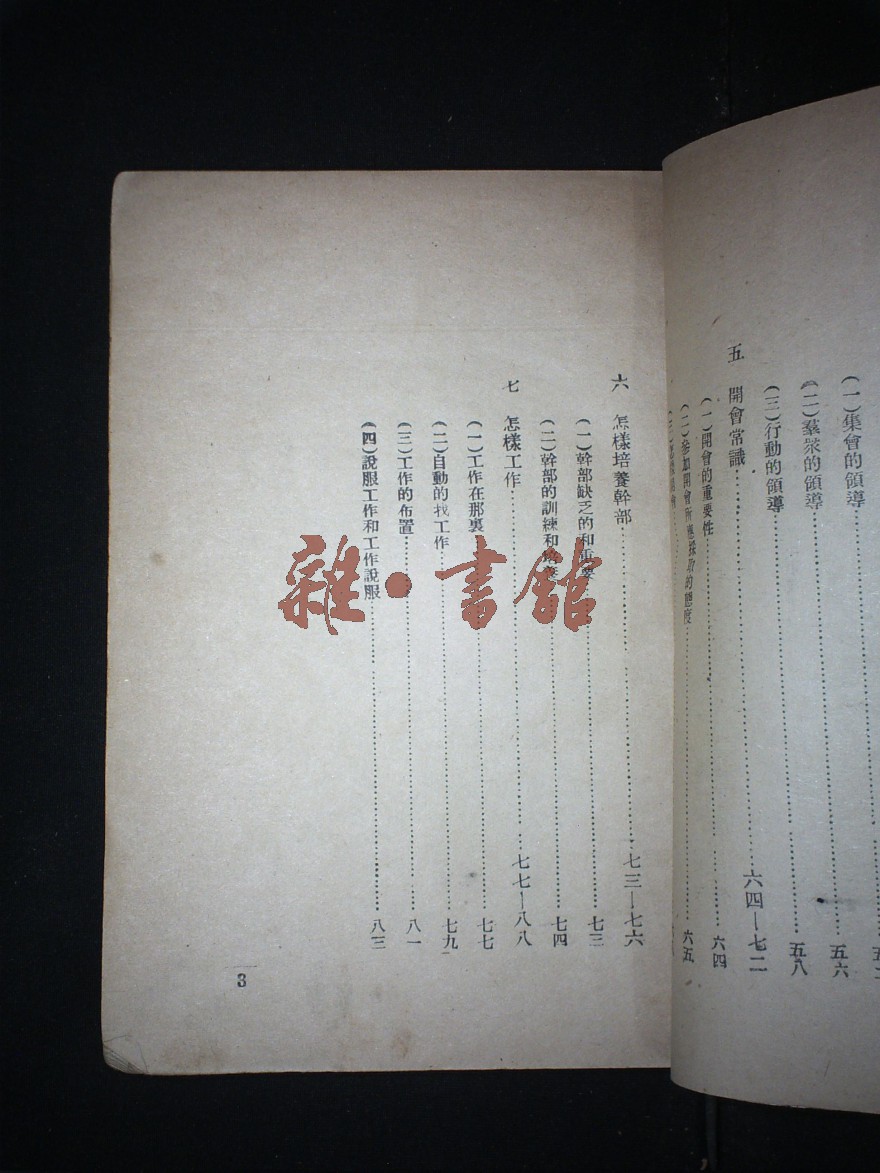 (一)集會的領導
(二)羣衆的領導……五六
(三)行動的領導……五八
五　開會常識……六四—七二
(一)開會的重要性……六四
(二)參加開會所應採取的態度……六五
六　怎樣培養幹部……七三—七六
(一)幹部缺乏的和重要……七三
(二)幹部的訓練和培養……七四
七　怎樣工作……七七—八八
(一)工作在那裏……七七
(二)自動的找工作……七九
(三)工作的布置……八一
(四)說服工作和工作說服……八三
3
雜·書館